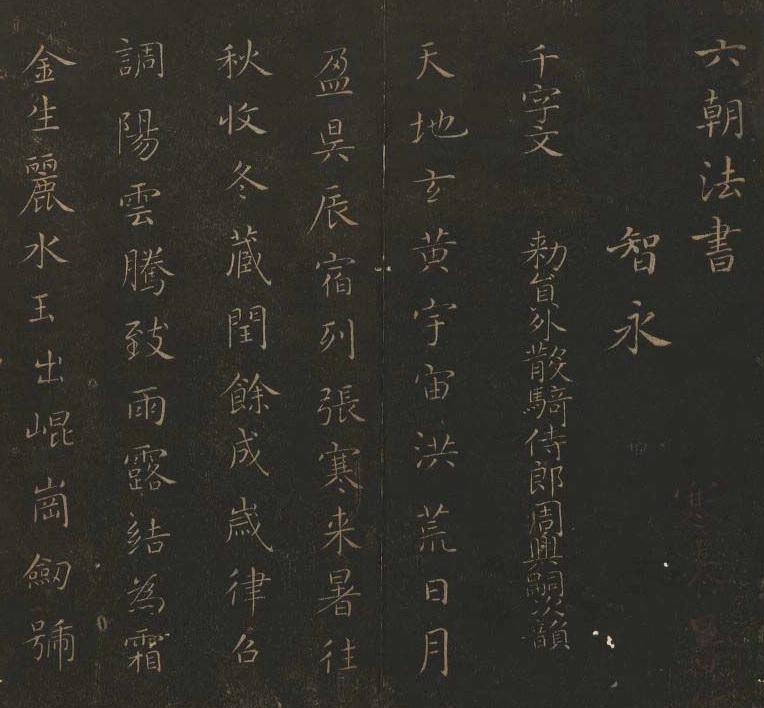 六朝法書
智永
千字文 勅貟外散騎侍郎周興嗣次韻
天地玄黄宇宙洪荒日月
盈昃辰宿列張寒来暑往
秋收冬蔵閏餘成歳律召
調陽雲騰致雨露結為霜
金生麗水玉出崐崗劒號